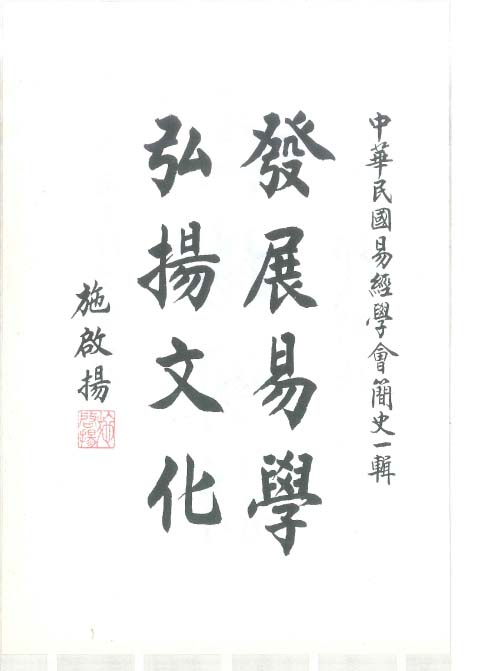 中華民國易經學會簡史一輯
發展易學
弘揚文化
施啟揚
施啟揚